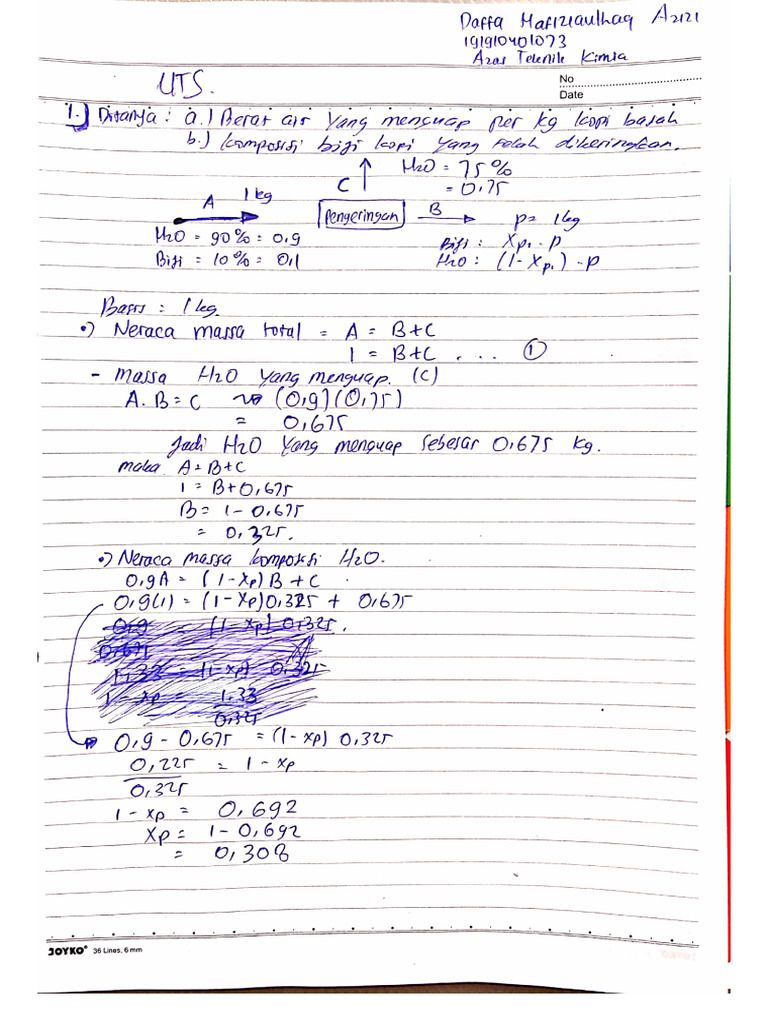 Daffa Hafiziaulhaq A2121
191910401073
Azas Teknik Kimia
No
Date
UTS.
1.) Ditanya : a.) Berat air yang menguap per kg kopi basah
b.) Komposisi biji kopi yang telah dikeringkan.
H2O = 75%
= 0,75
C
A 1 kg
Pengeringan
B
P = 1 kg
H2O = 90% = 0,9
Biji = 10% = 0,1
Biji : Xp. · P
H2O : (1 - Xp.) · P
Basis : 1 kg
•) Neraca massa total = A = B+C
1 = B+C .... ①
- Massa H2O yang menguap. (C)
A. B = C ~> (0,9)(0,75)
= 0,675
Jadi H2O yang menguap sebesar 0,675 kg.
maka A = B+C
1 = B+0,675
B = 1 - 0,675
= 0,325.
•) Neraca massa komposisi H2O.
0,9A = (1-Xp)B + C
0,9(1) = (1-Xp)0,325 + 0,675
0,9 = (1-Xp) 0,325.
0,675
1,33 = (1-Xp) 0,325
1 - Xp = 1,33
0,325
0,9 - 0,675 = (1-Xp) 0,325
0,225 = 1 - Xp
0,325
1 - Xp = 0,692
Xp = 1 - 0,692
= 0,308
JOYKO® 36 Lines, 6 mm